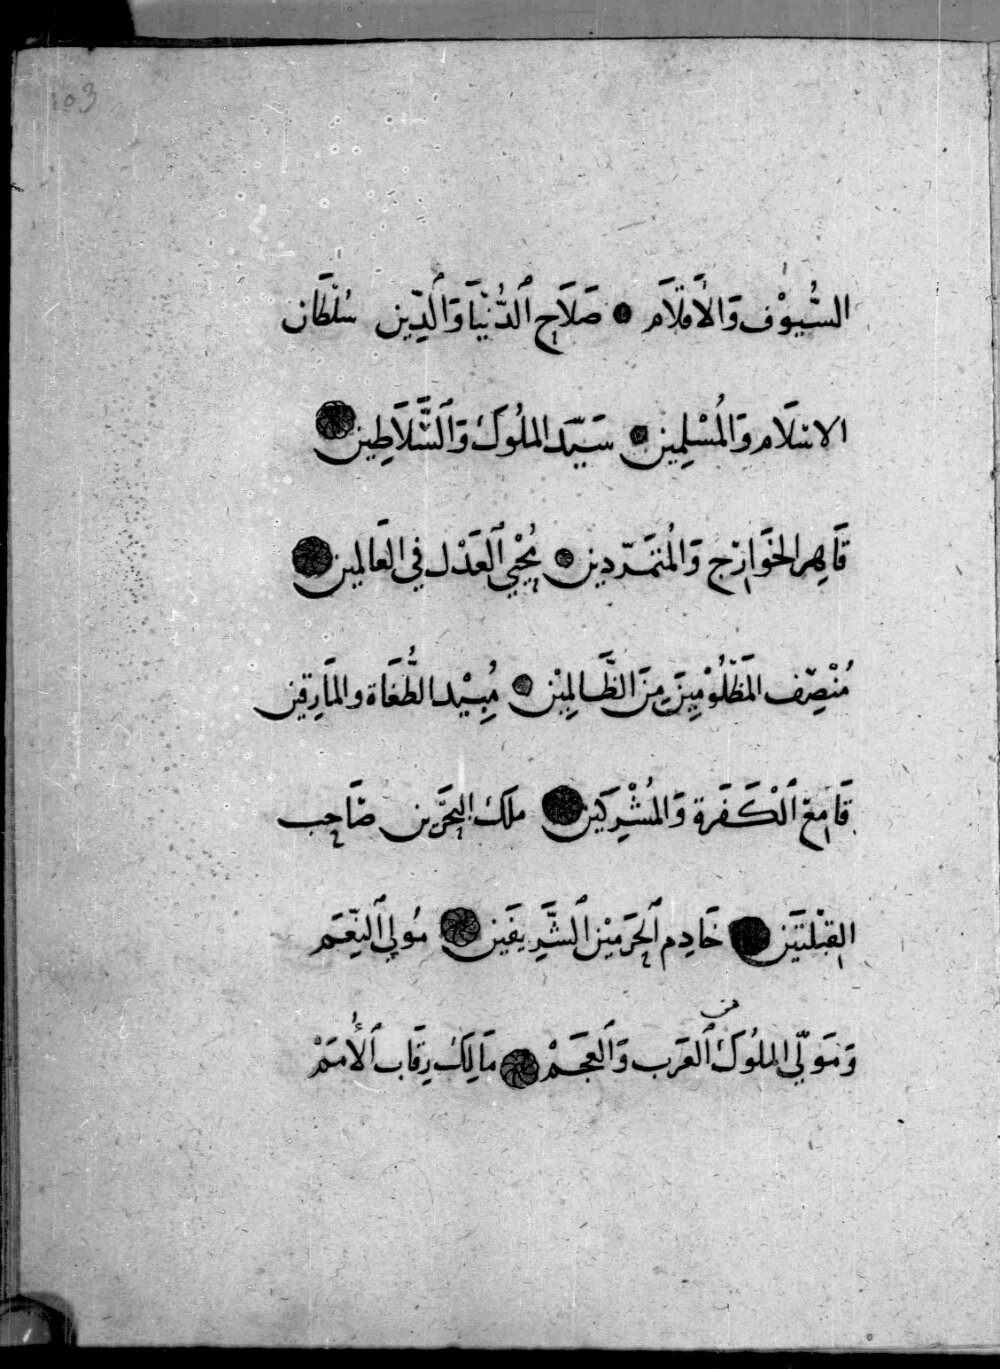 103
السُّيوْف وَالأَقلَام صَلَاح ٱلدُّنْيَا وَٱلدِّين سُلْطَان
الاسْلَام وَالمُسْلِمِين سَيّد الملُوك وَٱلسَّلَاطِين
قَاهِر الخَوَارِج وَالمُتمَرّدِين مُحْيِي ٱلعَدْل في العَالمِين
مُنْصِف المَظْلُوْمِينَ مِنَ الظَّالِمِيْن مُبِيْد الطُّغَاة والمَارِقين
قَامِع ٱلْكَفَرة وَالمُشْرِكِين ملك البَحَرَين صَاحِب
القِبْلتَين خَادِم ٱلحَرَميْن ٱلشَّرِيفَين مُولِي ٱلنِّعَم
من
وَمَولَى الملُوك ٱلعَرَب وَٱلعَجَمْ مَالِك رِقَاب ٱلأُممَْ